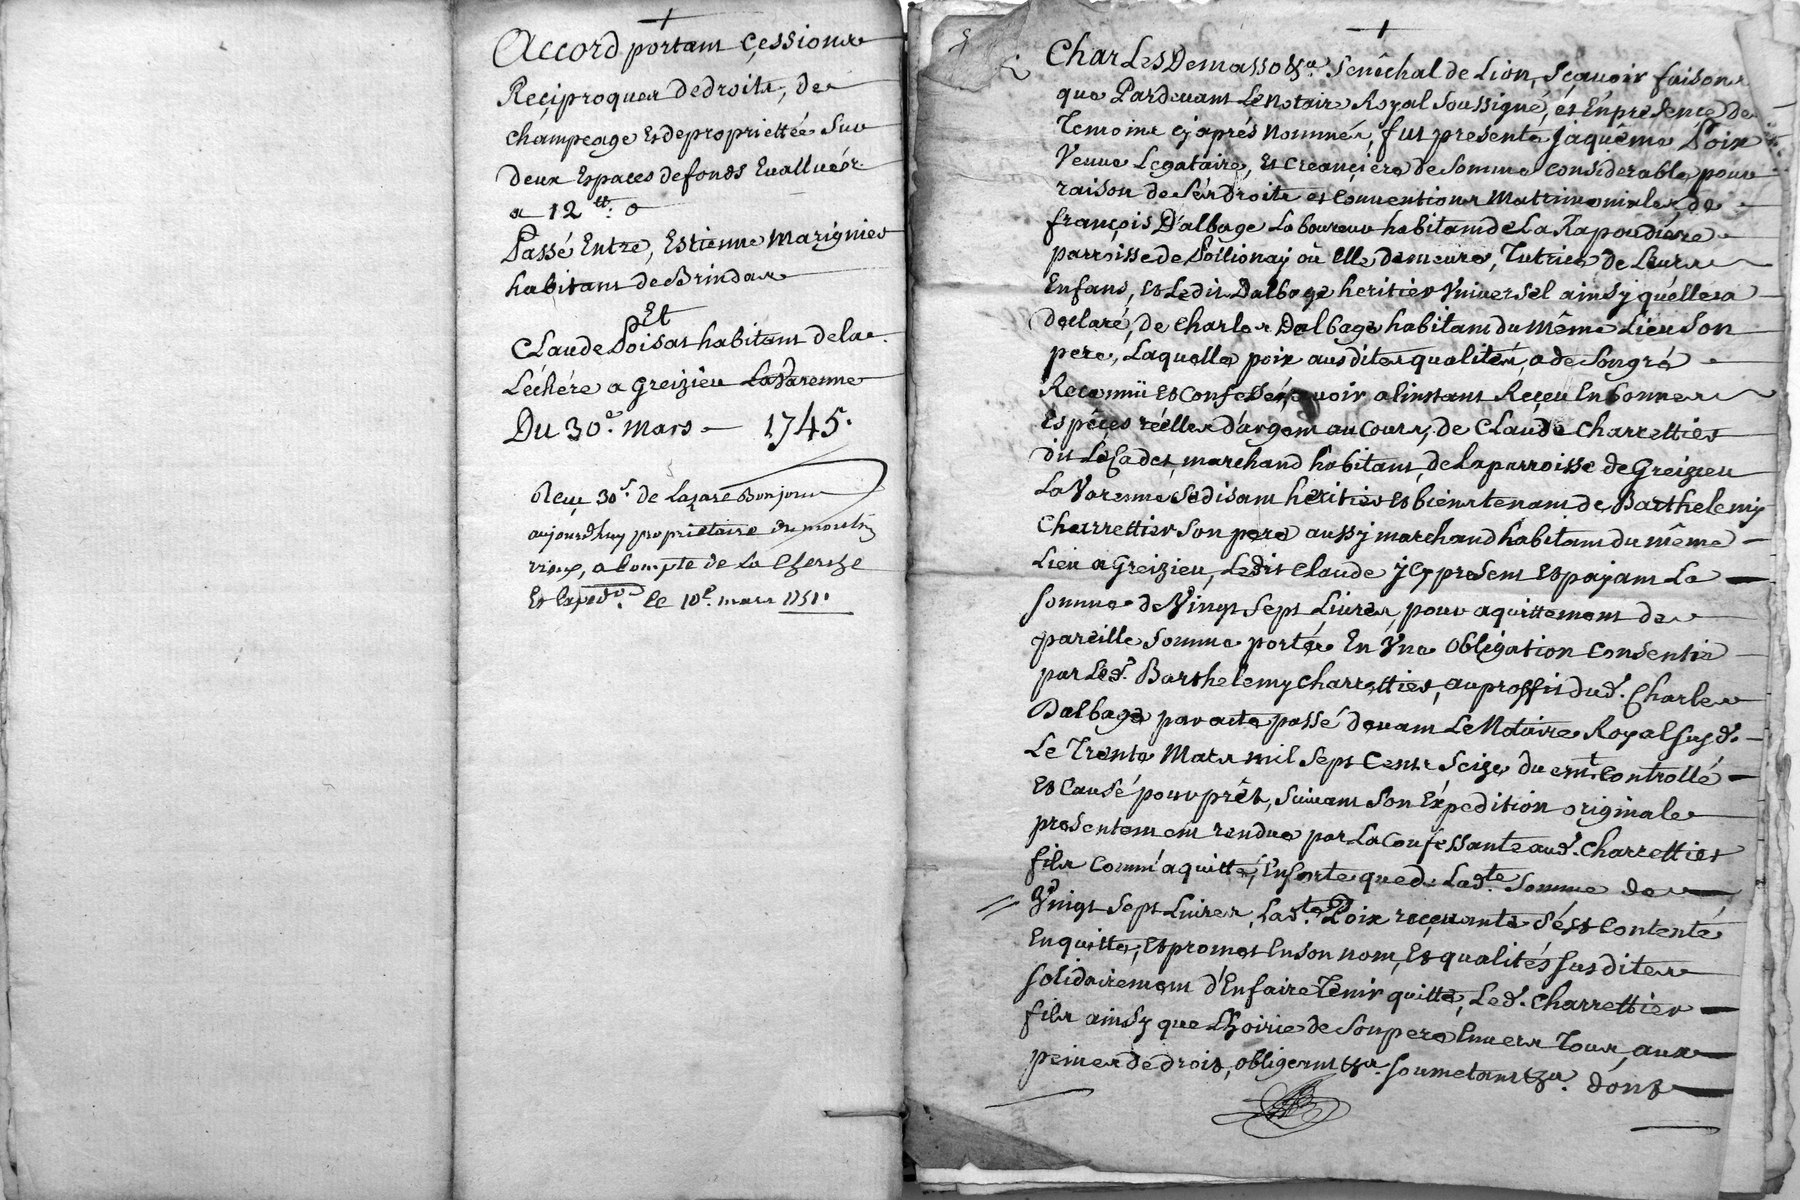 Accord portant Çessions
Reçiproques de droits, de
champeage et de propriettée sur
deux Espaces de fonds Evalluéés
a 12 tt. 0
Passé Entre, Estienne Marignier
habitant de Brindas
Et
Claude Poisat habitant de la
Léchére a Greizieu LaVarenne
Du 30e. Mars 1745.
Reçu 30s. de Lazare Bonjour
aujourdhuy proprietaire du moulin
vieux, a Compte de La
Et le 10e. mars 1751.
Charles Demasso &a. Senéchal de Lion, Sçavoir faisons
que Pardevant Le Notaire Royal Soussigné, et Enpresence des
Temoins cy aprés Nommés, fut presente Jaquême Poix
Veuve Legataire, et Creançiere de Somme Considerable, pour
raison de Sés Droits et Conventions Matrimoniales de
françois D'albage Laboureur habitant de La Rapoudiere
parroisse de Pollionay où Elle demeure, Tutrice de Leurs
Enfans, et Ledit Dalbage heritier Vniversel ainsy qu'elle a
declaré, de Charles Dalbage habitant du Même Lieu Son
pere, Laquelle poix aus dites qualités, a de Son gré
Reconnü et Confessé, avoir a linstant Reçeu En bonnes
Espéçes réélles d'argent au Cours, de Claude Charrettier
dit Le Cadet, marchand habitant de La parroisse de Greizieu
La Varenne Se disant héritier et bien tenant de Barthelemy
Charrettier Son pere aussy marchand habitant du même
Lieu a Greizieu, Ledit Claude jcy present et payant La
Somme de Vingt Sept Livres, pour aquittement de
pareille Somme portée En Vne Obligation Consentie
par Led. Barthelemy Charrettier, au proffit dud. Charles
Dalbage par acte passé devant Le Notaire Royal Susd.
Le Trente Mars mil Sept Cents Seize du Controllé
et Causé pour prêt, Suivant Son Expedition originale
presentement rendue par La Confessante aud. Charrettier
fils comm'aquitté, En Sorte que de Ladte. Somme de
Vingt Sept Livres, Ladte. Poix reçevante S'ést Contenté
En quitte, et promet En son nom, et qualités Sus dites
Solidairement d'En faire Tenir quitte, Led. Charrettier
fils ainsy que Lhoirie de Son pere Envers Tous, aux
peines de droit, obligeant &a. Soumetant &a. dont